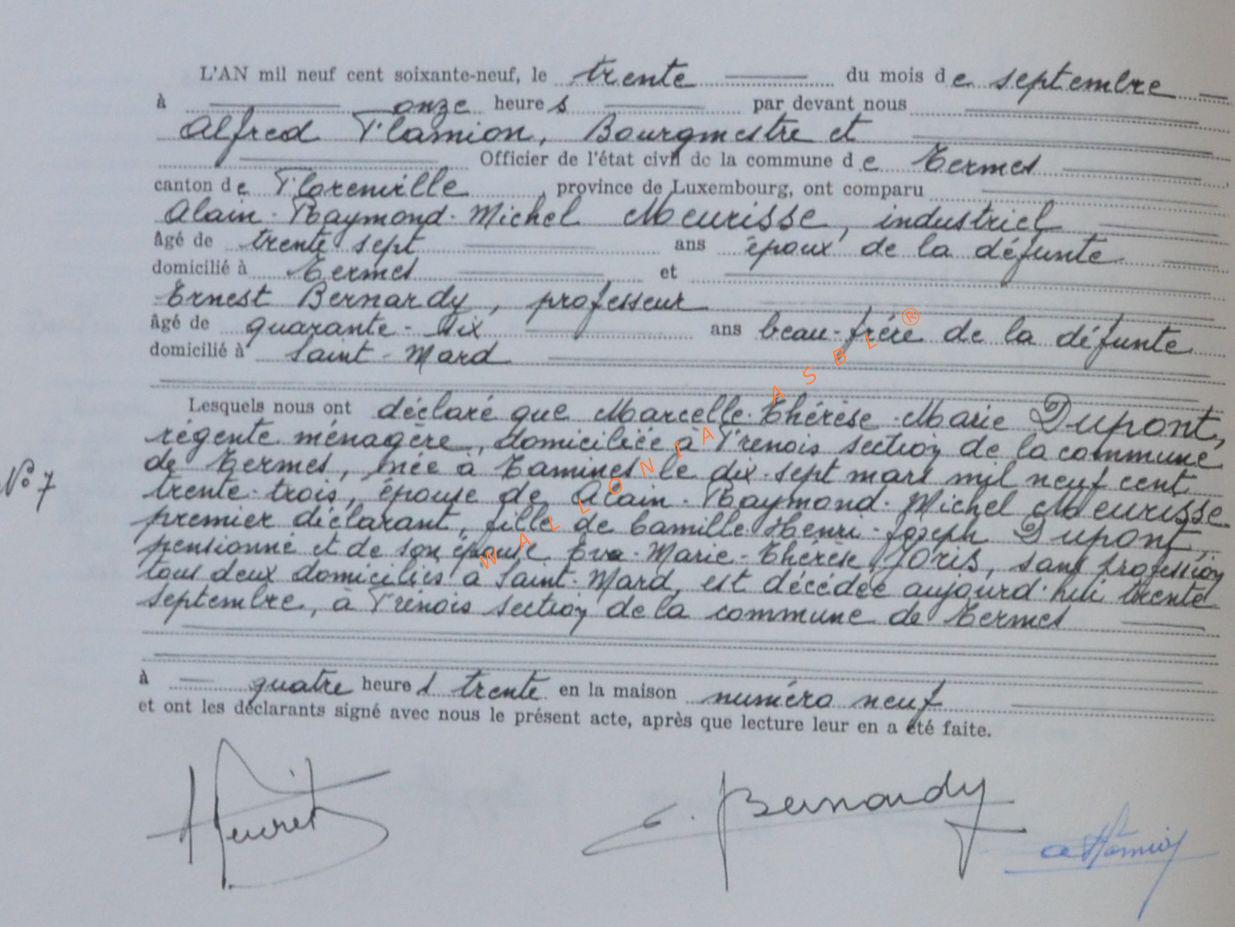 L'AN mil neuf cent soixante-neuf, le trente du mois de septembre
à onze heures par devant nous
Alfred Flamion, Bourgmestre et
Officier de l'état civil de la commune de Termes
canton de Florenville, province de Luxembourg, ont comparu
Alain-Raymond-Michel Meurisse, industriel
âgé de trente sept ans époux de la défunte
domicilié à Termes et
Ernest Bernardy, professeur
âgé de quarante-dix ans beau-frère de la défunte
domicilié à Saint-Mard
Lesquels nous ont déclaré que Marcelle-Thérèse-Marie Dupont,
régente ménagère, domiciliée à Frenois section de la commune
de Termes, née à Tamines le dix-sept mars mil neuf cent
N° 7
trente-trois, épouse de Alain-Raymond-Michel Meurisse
premier déclarant, fille de Camille-Henri-Joseph Dupont,
pensionné et de son épouse Eva-Marie-Thérèse Joris, sans profession
tous deux domiciliés à Saint-Mard, est décédée aujourd'hui trente
septembre, à Frenois section de la commune de Termes
à quatre heures trente en la maison numéro neuf
et ont les déclarants signé avec nous le présent acte, après que lecture leur en a été faite.
E. Bernardy
WALLONIA ASBL ®